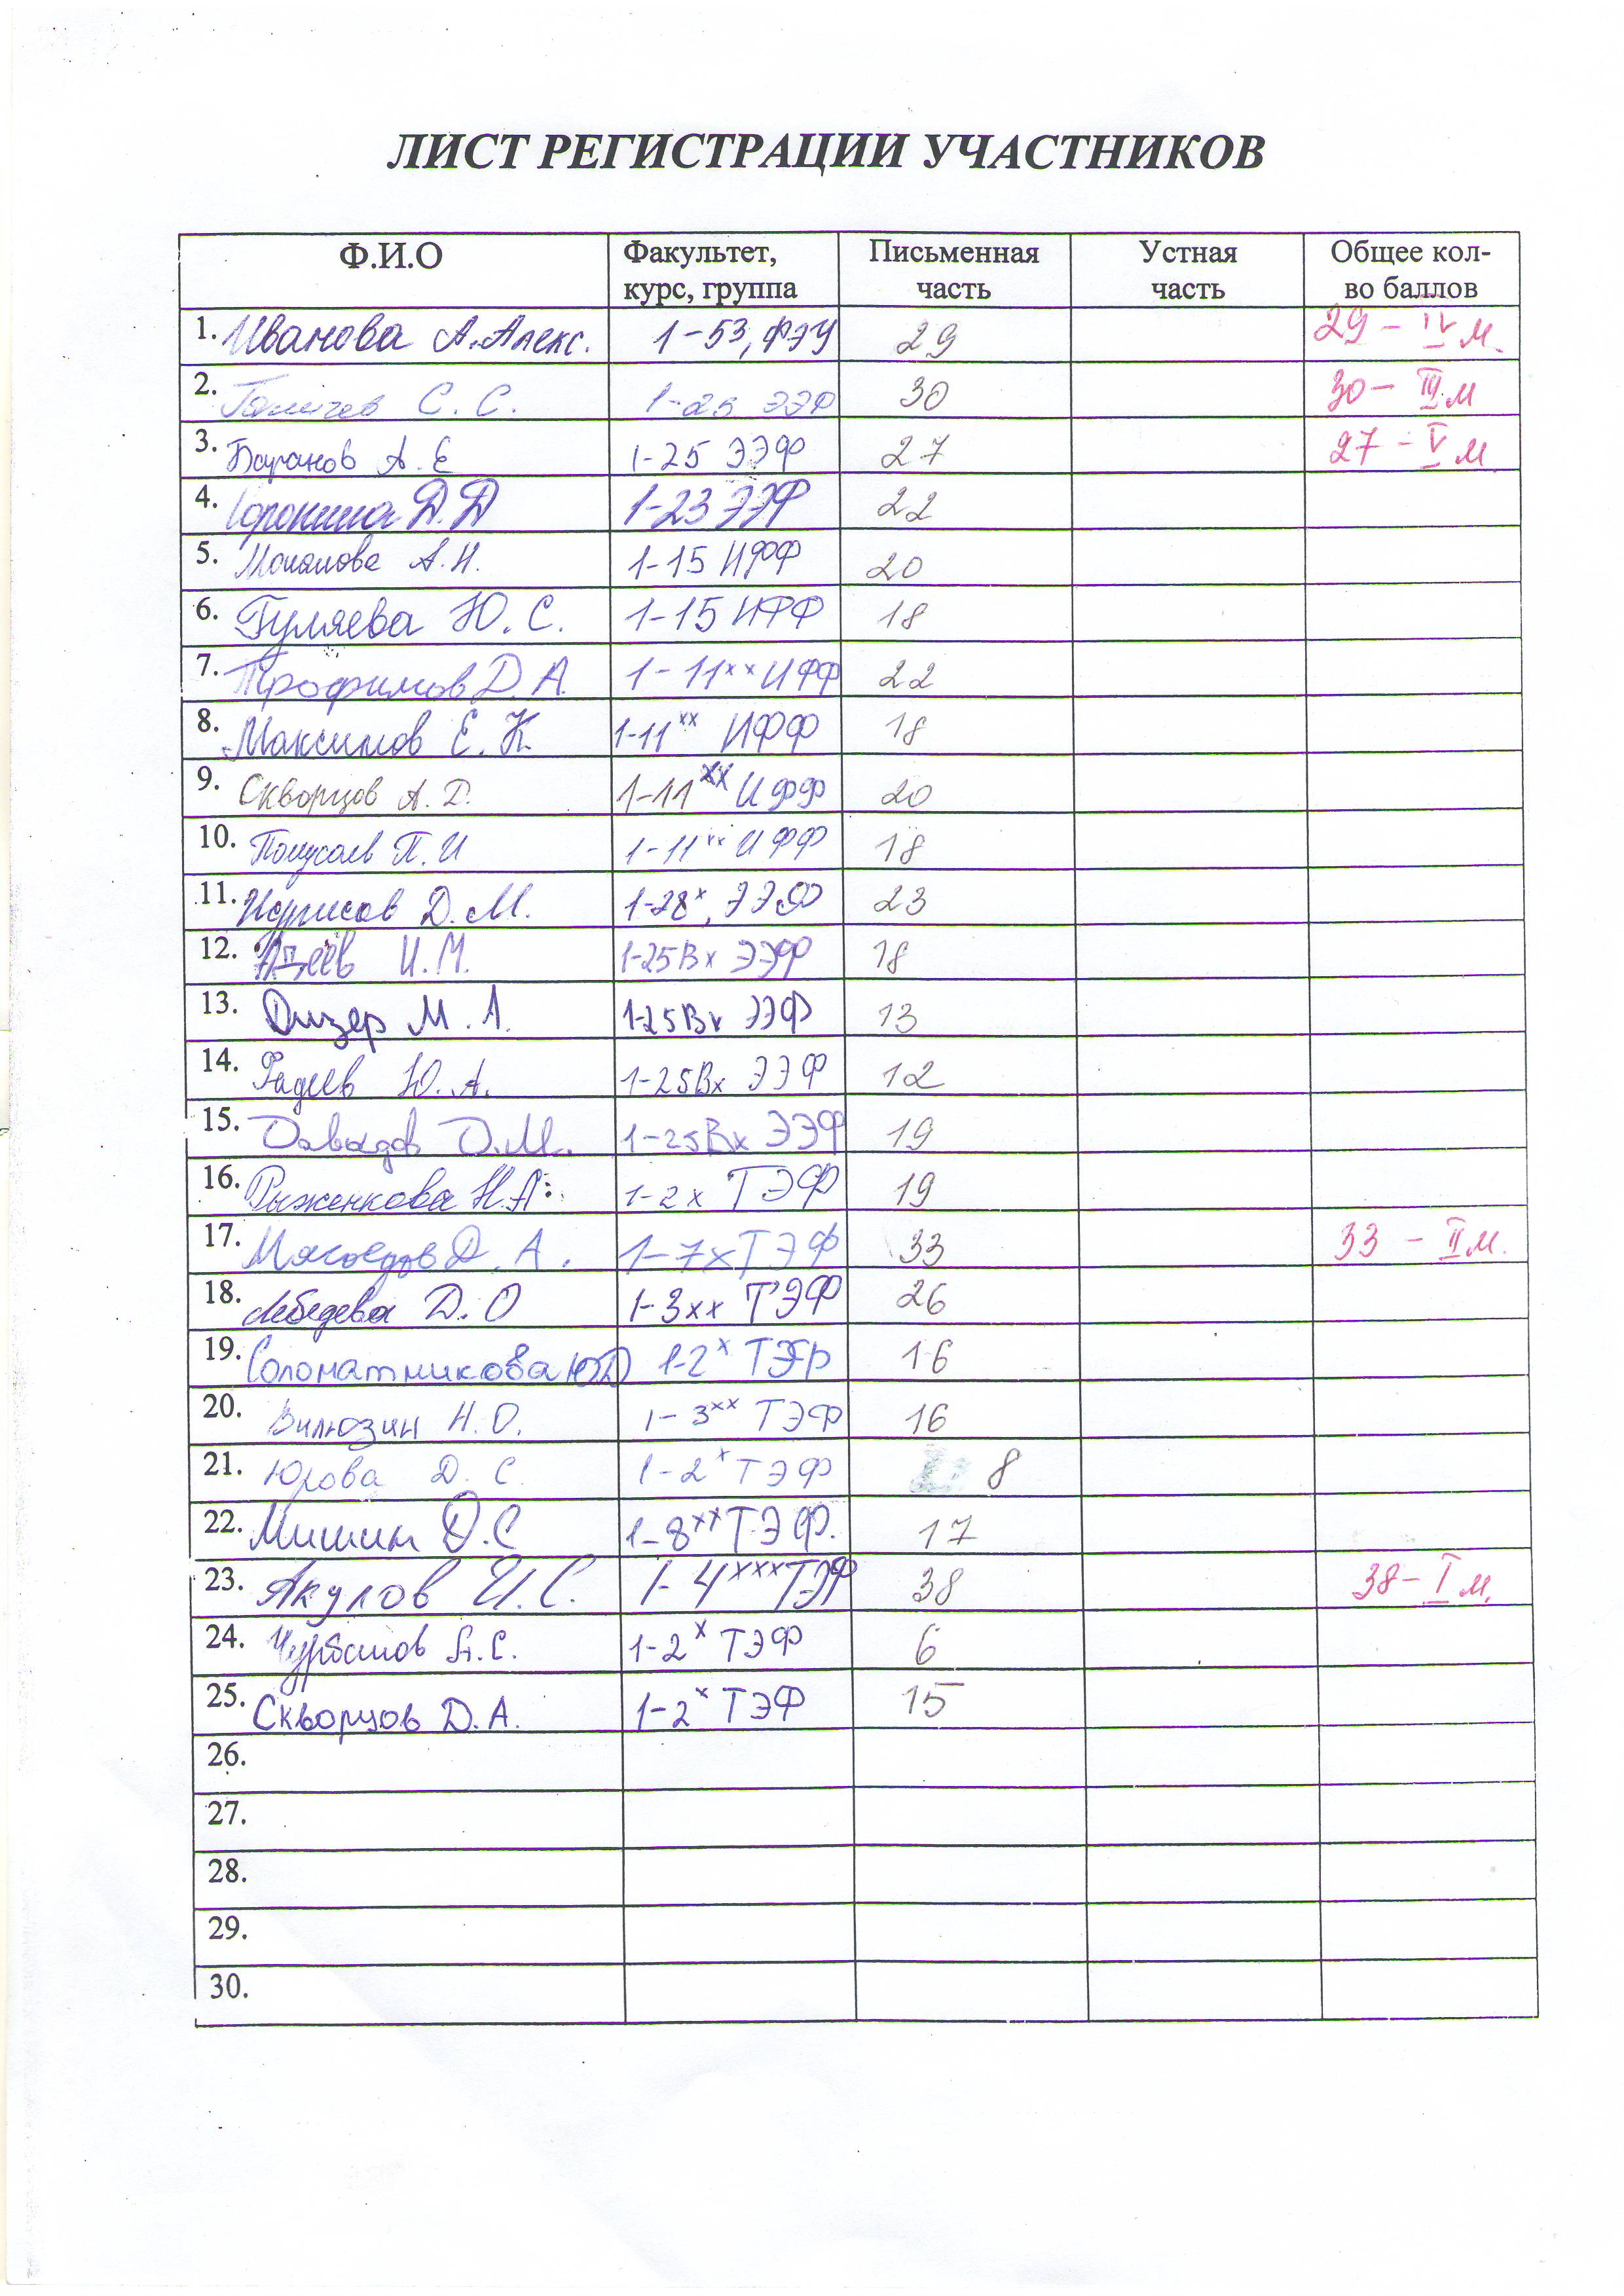 ЛИСТ РЕГИСТРАЦИИ УЧАСТНИКОВ
Ф.И.О Факультет, курс, группа Письменная часть Устная часть Общее кол-во баллов
1. Иванова А.Алекс. 1-53, ФЭУ 29 29 - IV м.
2. С. С. 1-25 ЭЭФ 30 30 - III м
3. Баранов А. Е 1-25 ЭЭФ 27 27 - V м
4. Сорокина Д.Д 1-23 ЭЭФ 22
5. А.И. 1-15 ИФФ 20
6. Гуляева Ю. С. 1-15 ИФФ 18
7. Трофимов Д. А. 1-11ˣˣ ИФФ 22
8. Максимов Е. К. 1-11ˣˣ ИФФ 18
9. Скворцов А. Д. 1-11ˣˣ ИФФ 20
10. П. И 1-11ˣˣ ИФФ 18
11. Д. М. 1-28ˣ, ЭЭФ 23
12. И. М. 1-25Вх ЭЭФ 18
13. Дизер М. А. 1-25Вх ЭЭФ 13
14. Фадеев Ю. А. 1-25Вх ЭЭФ 12
15. Давыдов Д.М. 1-25Вх ЭЭФ 19
16. Рыженкова Н.А. 1-2х ТЭФ 19
17. Мясоедов Д. А. 1-7х ТЭФ 33 33 - II м.
18. Лебедева Д. О 1-3хх ТЭФ 26
19. Соломатникова Ю.Д 1-2ˣ ТЭФ 16
20. Вилюзин Н. О. 1-3ˣˣ ТЭФ 16
21. Юрова Д. С. 1-2ˣ ТЭФ 8
22. Мишин Д.С 1-8ˣˣ ТЭФ. 17
23. Акулов И. С. 1-4ˣˣˣ ТЭФ 38 38 - I м.
24. Чурбанов А.С. 1-2ˣ ТЭФ 6
25. Скворцов Д. А. 1-2ˣ ТЭФ 15
26.
27.
28.
29.
30.